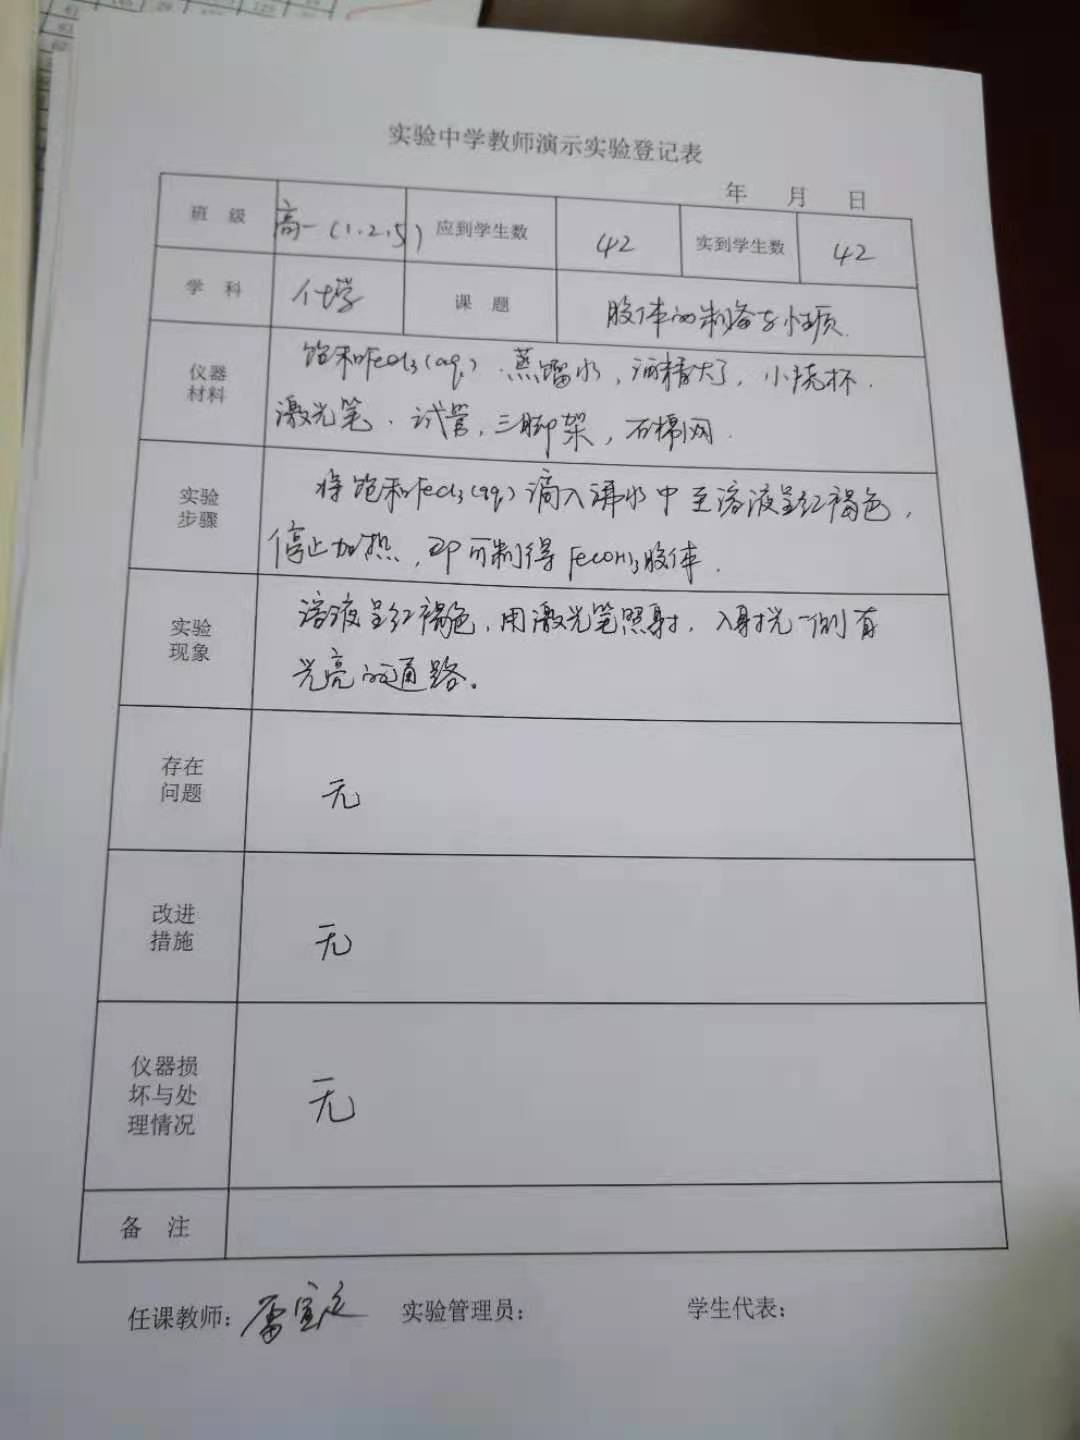 实验中学教师演示实验登记表
年 月 日
班 级 高一(1.2.5) 应到学生数 42 实到学生数 42
学 科 化学 课 题 胶体的制备与性质.
仪器
材料
饱和FeCl3(aq)、蒸馏水,酒精灯,小烧杯.
激光笔、试管,三脚架,石棉网.
实验
步骤
将饱和FeCl3(aq)滴入沸水中至溶液呈红褐色,
停止加热,即可制得Fe(OH)3胶体.
实验
现象
溶液呈红褐色,用激光笔照射,入射光一侧有
光亮的通路。
存在
问题
无
改进
措施
无
仪器损
坏与处
理情况
无
备 注
任课教师: 雷 实验管理员: 学生代表: